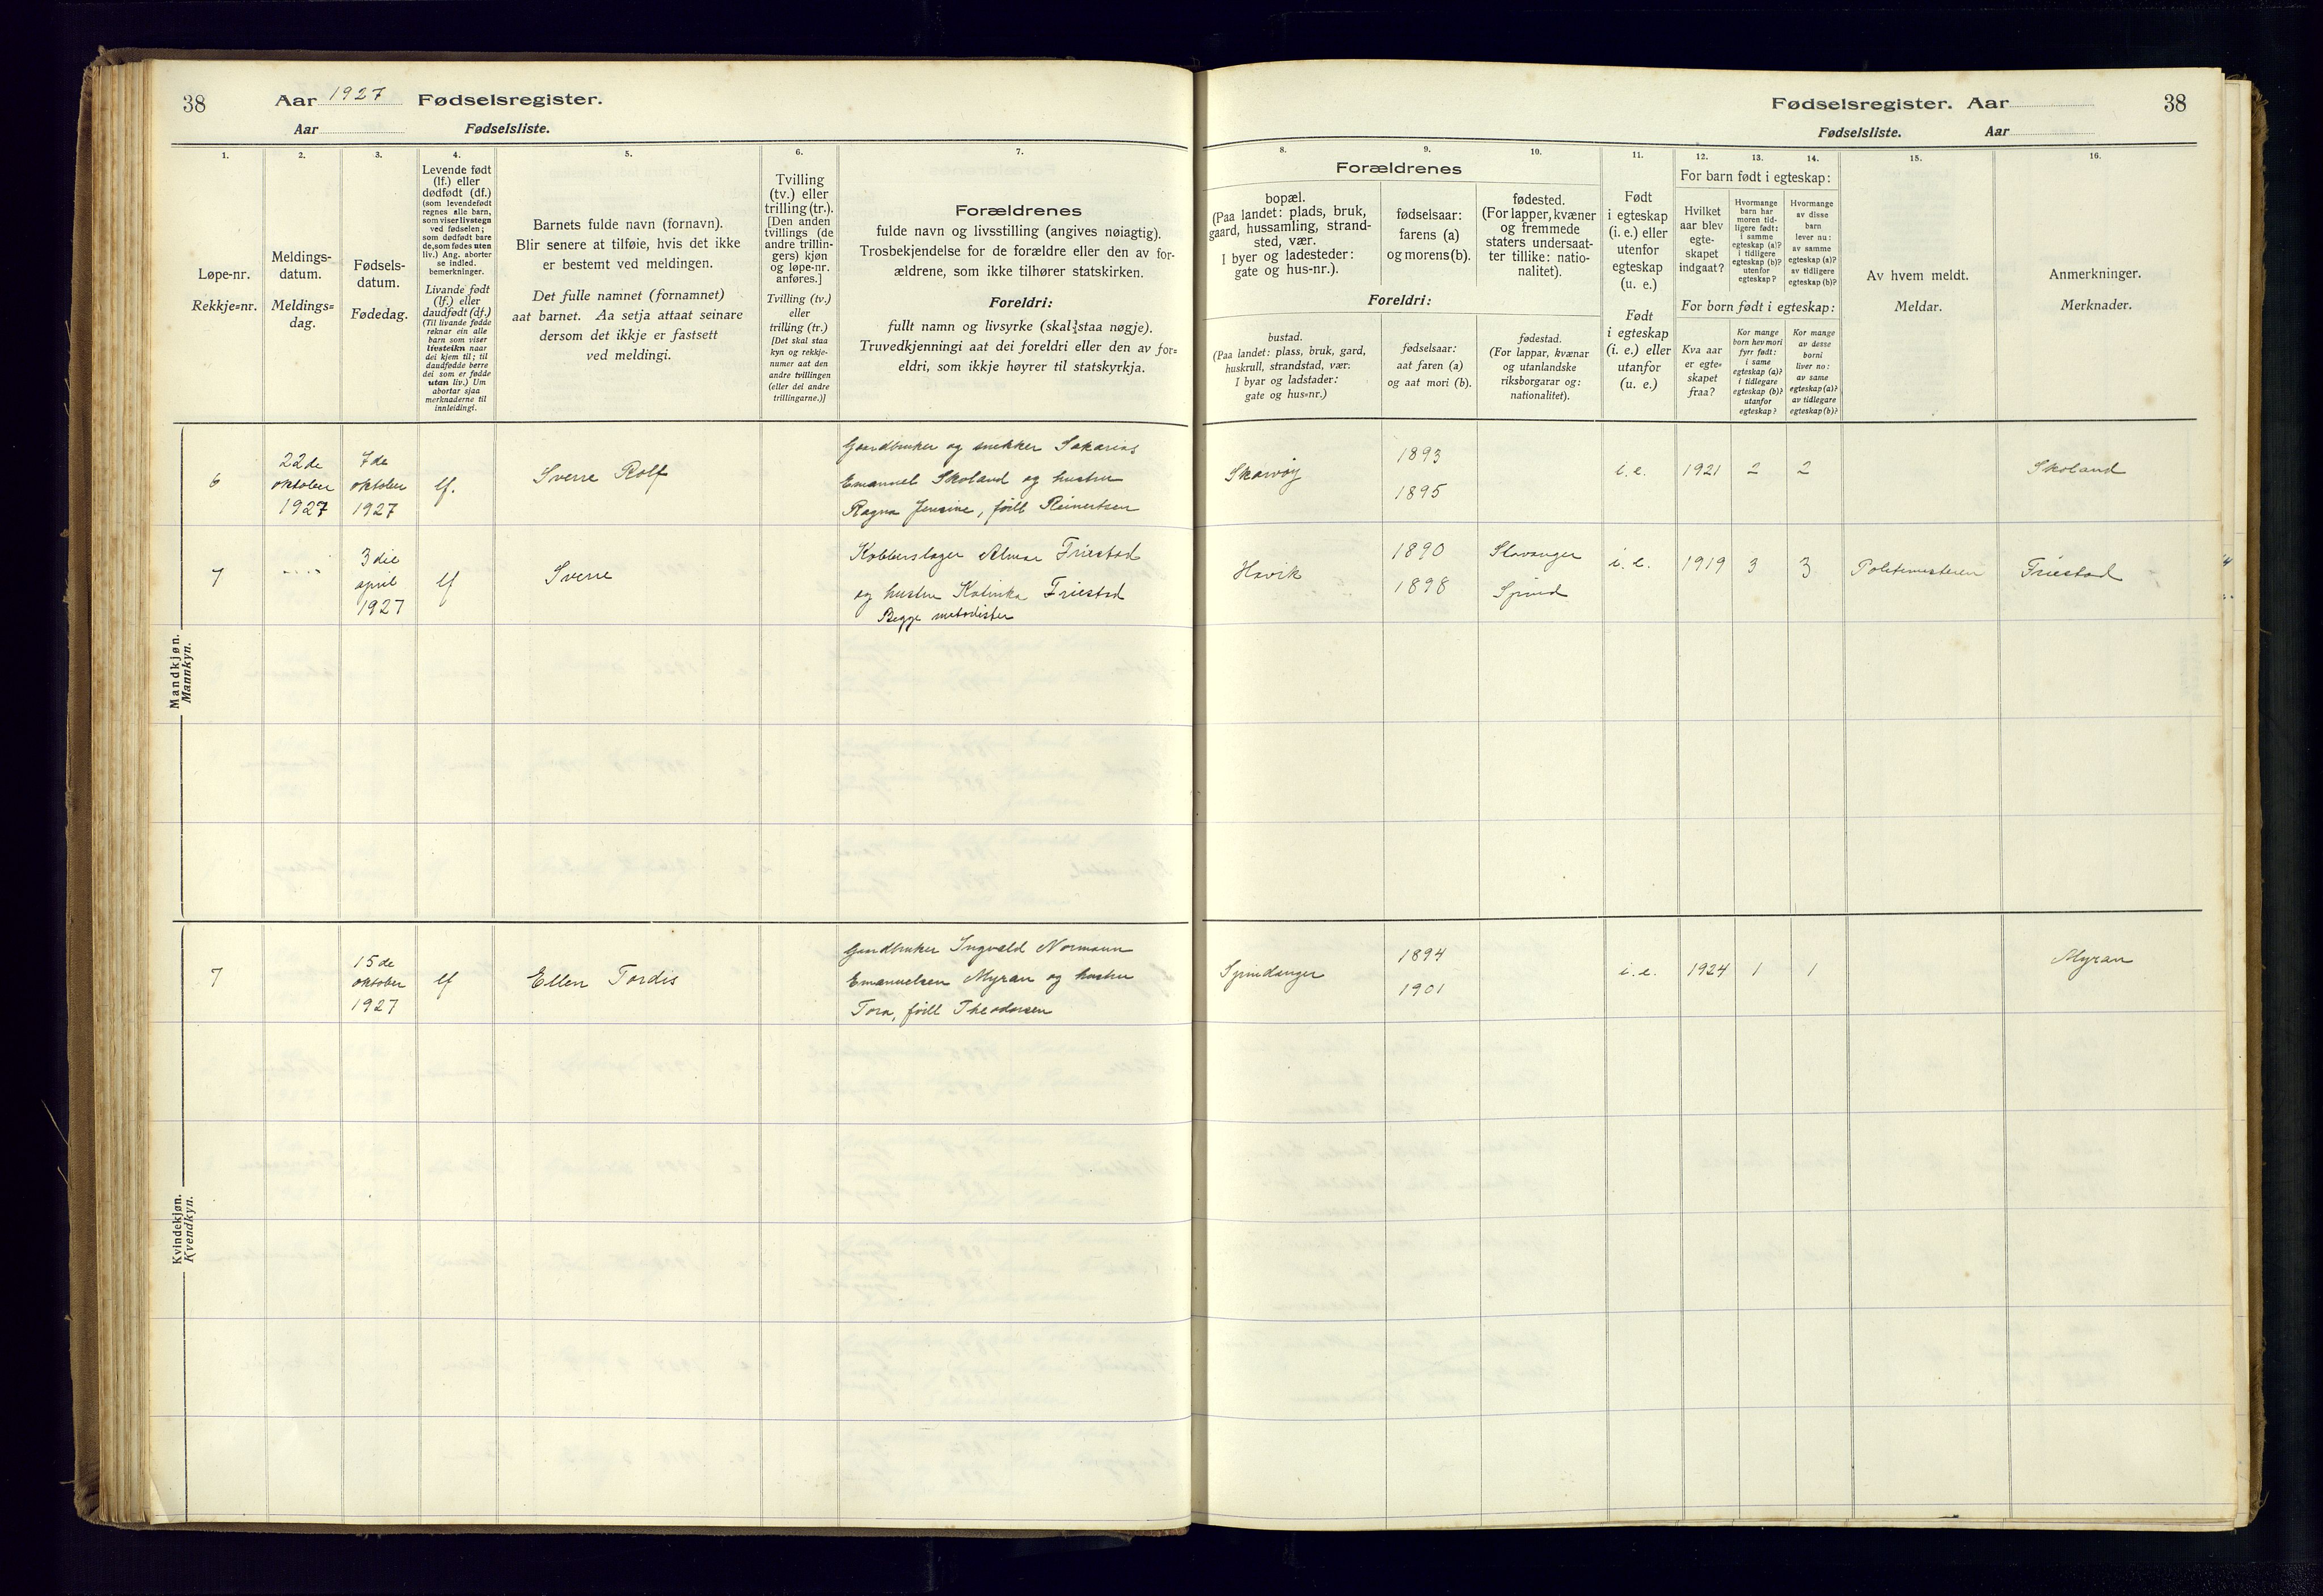 38
Aar 1927 Fødselsregister.
Aar Fødselsliste.
1.
Løpe-nr.
Rekkje=nr.
2.
Meldings-
datum.
Meldings=
dag.
3.
Fødsels-
datum.
Fødedag.
4.
Levende født
(lf.) eller
dødfødt (df.)
(som levendefødt
regnes alle barn,
som viser livstegn
ved fødselen;
som dødfødt bare
de, som fødes uten
liv.) Ang. aborter
se indled.
bemerkninger.
Livande født
(lf.) eller
daudfødt (df.)
(Til livande fødde
reknar ein alle
barn som viser
livsteikn naar
dei kjem til; til
daudfødde berre
dei som er fødde
utan liv.) Um
abortar sjaa
merknaderne til
innleidingi.
5.
Barnets fulde navn (fornavn).
Blir senere at tilføie, hvis det ikke
er bestemt ved meldingen.
Det fulle namnet (fornamnet)
aat barnet. Aa setja attaat seinare
dersom det ikkje er fastsett
ved meldingi.
6.
Tvilling
(tv.) eller
trilling (tr.).
[Den anden
tvillings (de
andre trillin-
gers) kjøn
og løpe-nr.
anføres.]
Tvilling (tv.)
eller
trilling (tr.)
[Det skal staa
kyn og rekkje-
numer aat den
andre tvillingen
(eller dei andre
trillingarne.)]
7.
Forældrenes
fulde navn og livsstilling (angives nøiagtig).
Trosbekjendelse for de forældre eller den av for-
ældrene, som ikke tilhører statskirken.
Foreldri:
fullt namn og livsyrke (skal staa nøgje).
Truvedkjenningi aat dei foreldri eller den av for=
eldri, som ikkje høyrer til statskyrkja.
Mandkjøn.
Mannkyn.
6
22de
oktober
1927
7de
oktober
1927
lf.
Sverre Rolf
Gaardbruker og snekker Sakarias
Emanuel Skoland og hustru
Ragna Jensine, født Reinertsen
7
3die
april
1927
lf
Sverre
Kobberslager Almar Friestad
og hustru Katinka Friestad
Begge metodister
Kvindekjøn.
Kvendkyn.
7
15de
oktober
1927
lf
Ellen Tordis
Gaardbruker Ingvald Normann
Emanuelsen Myran og hustru
Tora, født Theodorsen
Fødselsregister. Aar 38
Fødselsliste. Aar
8.
Forældrenes
bopæl.
(Paa landet: plads, bruk,
gaard, hussamling, strand-
sted, vær.
I byer og ladesteder:
gate og hus-nr.).
Foreldri:
bustad.
(Paa landet: plass, bruk, gard,
huskrull, strandstad, vær.
I byar og ladstader:
gate og hus=nr.)
9.
fødselsaar:
farens (a)
og morens (b).
fødselsaar:
aat faren (a)
og aat mori (b).
10.
fødested.
(For lapper, kvæner
og fremmede
staters undersaat-
ter tillike: natio-
nalitet).
fødestad.
(For lappar, kvænar
og utanlandske
riksborgarar og:
nationalitet).
11.
Født
i egteskap
(i. e.) eller
utenfor
egteskap
(u. e.)
Født
i egteskap
(i. e.) eller
utanfor
(u. e.)
12.
For barn født i egteskap:
Hvilket
aar blev
egte-
skapet
indgaat?
For born født i egteskap:
Kva aar
er egte-
skapet
fraa?
13.
Hvormange
barn har
moren tid-
ligere født:
i samme
egteskap (a)?
i tidligere
egteskap (b)?
utenfor
egteskap?
Kor mange
born hev mori
fyrr født:
i same
egteskap (a)?
i tidlegare
egteskap (b)?
utanfor
egteskap?
14.
Hvormange
av disse
barn
lever nu:
av samme
egteskap (a)?
av tidligere
egteskap (b)?
Kor mange
av desse
borni
liver no:
av same
egteskap (a)?
av tidlegare
egteskap (b)?
15.
Av hvem meldt.
Meldar.
16.
Anmerkninger.
Merknader.
Skarvøy
1893
1895
i. e.
1921
2
2
Skoland
Havik
1890
1898
Stavanger
Spind
i. e.
1919
3
3
Politimesteren
Friestad
Spindanger
1894
1901
i. e.
1924
1
1
Myran